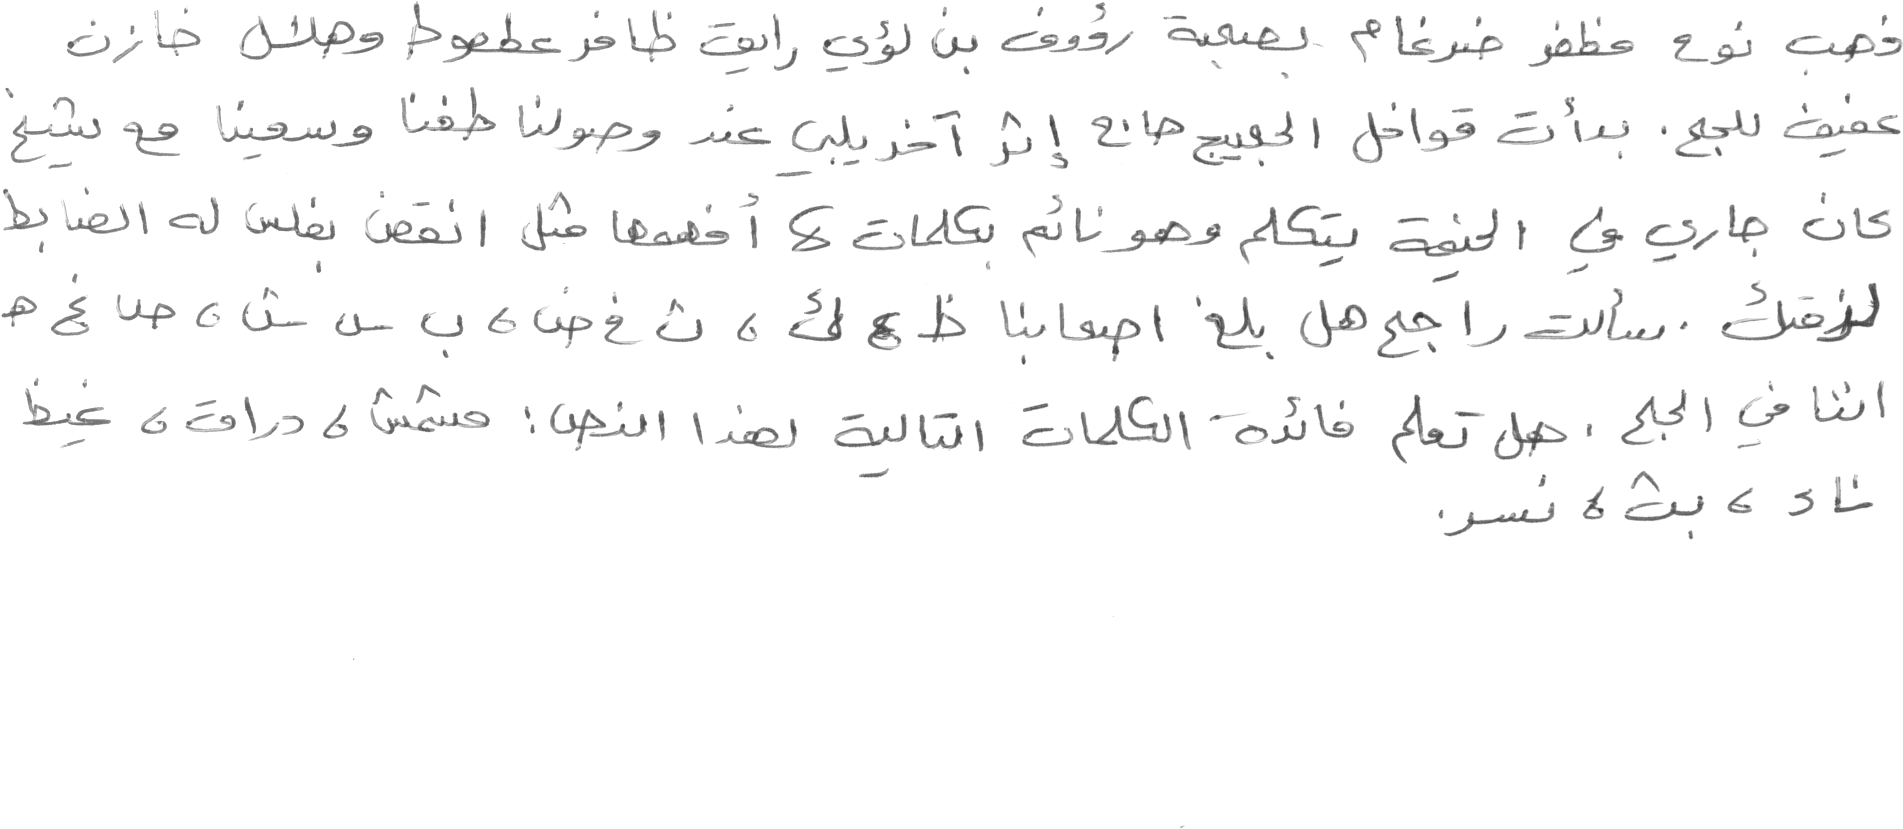 ذهب نوح مظفر ضرغام بصحبة رؤوف بن لؤي رايق ظافر عطعوط وهلال خازن
عفيف للحج . بدأت قوافل الحجيج حاج إثر آخر يلبي عند وصولنا طفنا وسعينا مع شيخ
كان جاري في الخيمة يتكلم وهو نائم بكلمات لا أفهمها مثل انقض بفلس له الضابط
لزقتك . سألت راجح هل بلغ اصحابنا ظ ج ك ، ث غ ض ، ب س ش ، ص غ ه
اننا في الحج . هل تعلم فائدة الكلمات التالية لهذا النص : مشمش ، دراق ، غيظ
ناد ، بث ، نسر .